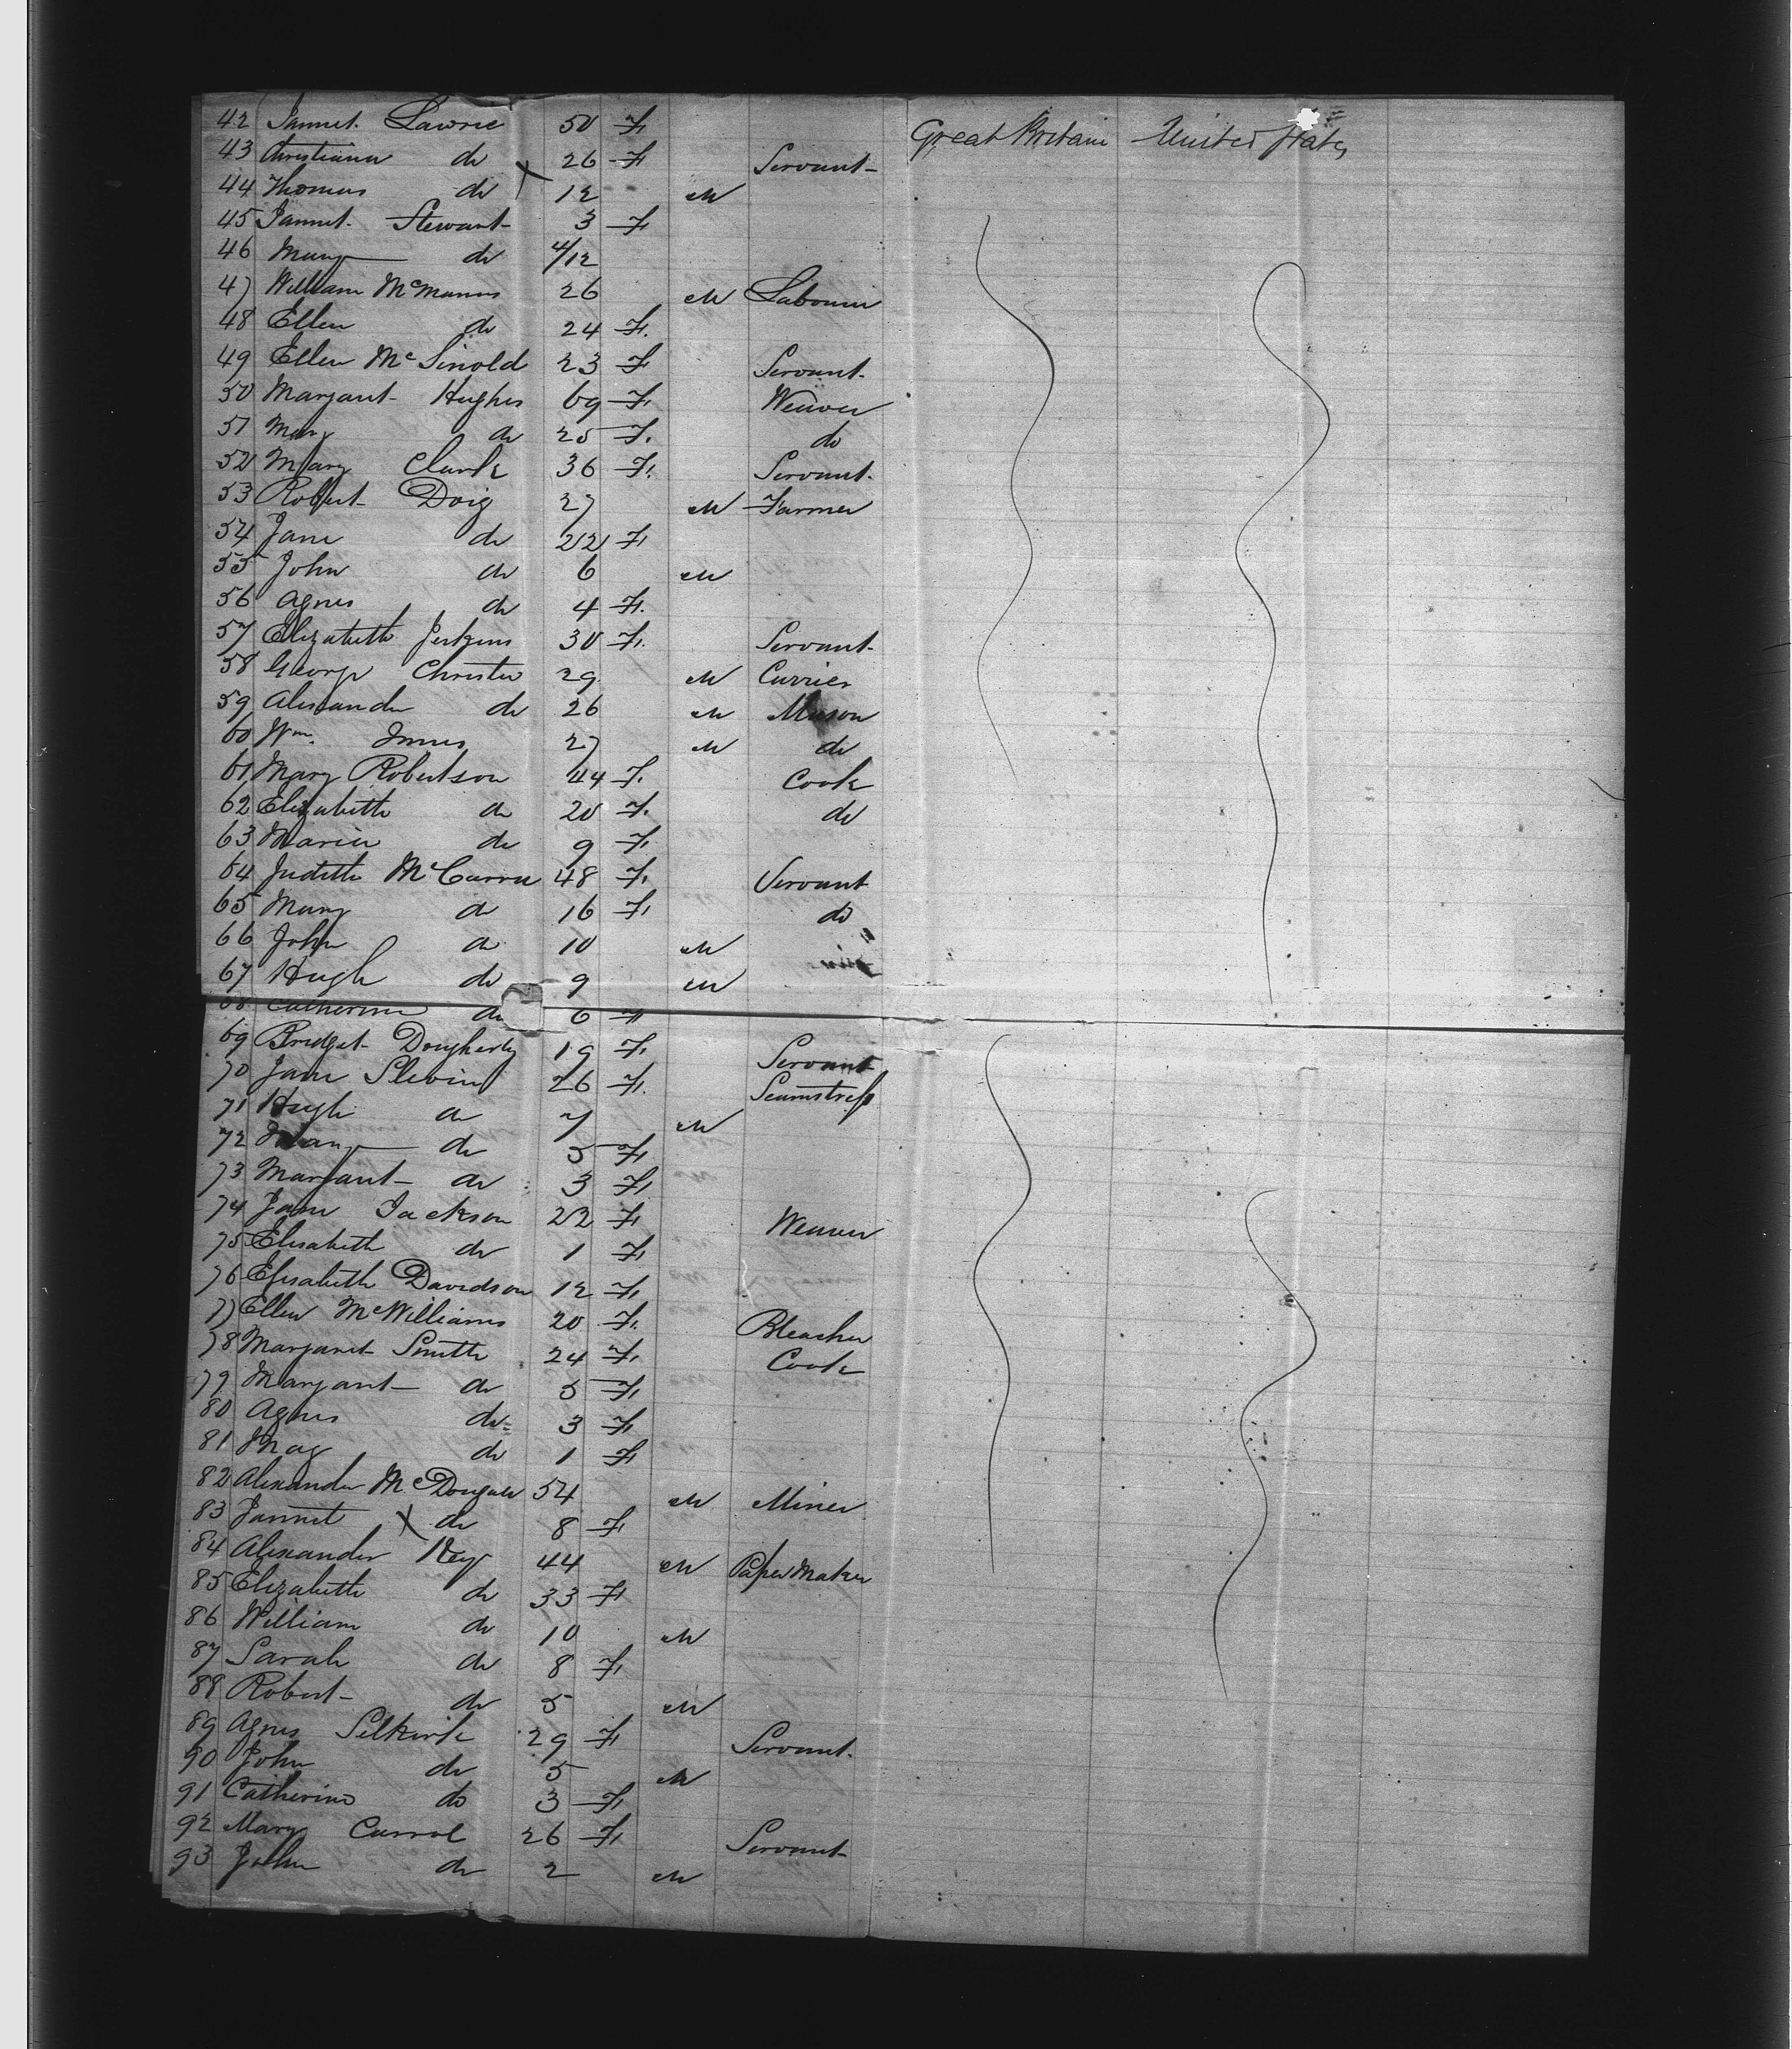 42 Jannet Lawrie 50 F Great Britain United States
43 Christiana do 26 F Servant
44 Thomas do 12 M
45 Jannet Stewart 3 F
46 Mary do 4/12
47 William McManus 26 M Labourer
48 Ellen do 24 F
49 Ellen Mc 23 F Servant
50 Margaret Hughes 69 F Weaver
51 Mary do 25 F do
52 Mary Clark 36 F Servant
53 Robert Doig 27 M Farmer
54 Jane do 22 F
55 John do 6 M
56 Agnes do 4 F
57 Elizabeth Perkins 30 F Servant
58 George Christie 29 M Currier
59 Alexander do 26 M Mason
60 Wm Innes 27 M do
61 Mary Robertson 44 F Cook
62 Elizabeth do 20 F do
63 Maria do 9 F
64 Judith 48 F Servant
65 Mary do 16 F do
66 John do 10 M
67 Hugh do 9 M
68 Catherine do 6 F
69 Bridget Dougherty 19 F Servant
70 Jane Slevin 26 F Seamstress
71 Hugh do 7 M
72 Mary do 5 F
73 Margaret do 3 F
74 Jane Jackson 22 F Weaver
75 Elisabeth do 1 F
76 Elisabeth Davidson 12 F
77 Ellen McWilliams 20 F Bleacher
78 Margaret Smith 24 F Cook
79 Margaret do 5 F
80 Agnes do 3 F
81 Mag do 1 F
82 Alexander McDougall 54 M Miner
83 Jannet X do 8 F
84 Alexander Key 44 M Paper Maker
85 Elizabeth do 33 F
86 William do 10 M
87 Sarah do 8 F
88 Robert do 5 M
89 Agnes Selkirk 29 F Servant
90 John do 5 M
91 Catherine do 3 F
92 Mary Carrol 26 F Servant
93 John do 2 M